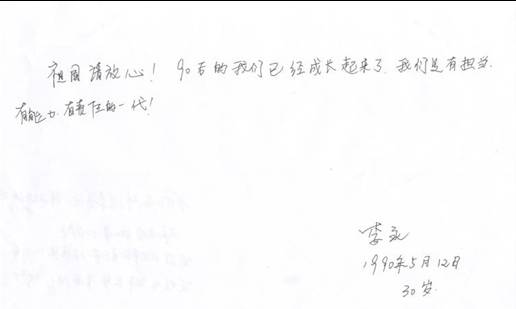 祖国请放心！90后的我们已经成长起来了，我们是有担当、
有能力、有责任的一代！
李
1990年5月12日
30岁